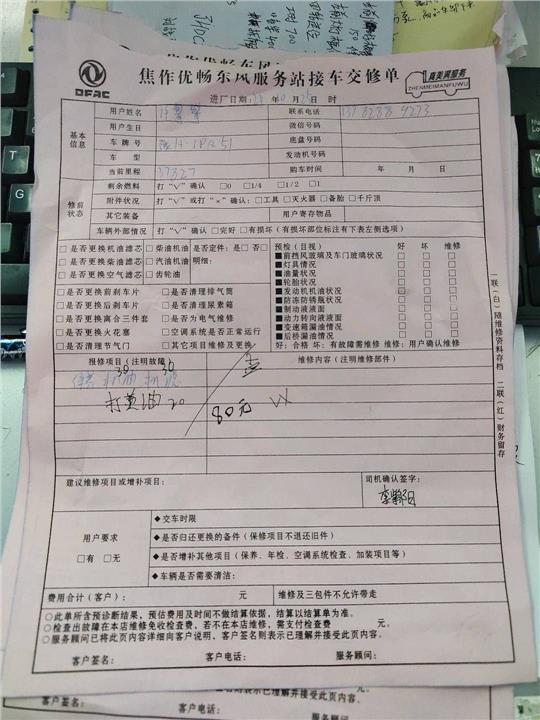 DFAC
焦作优畅东风服务站接车交修单
真美满服务
ZHENMEIMANFUWU
进厂日期: 年 月 日 时
基本信息
用户姓名 联系电话
用户生日 微信号码
车牌号 底盘号码
车型 发动机号码
当前里程 37327 购车时间 年 月 日
修前状态
剩余燃料 打“√”确认 □0 □1/4 □1/2 □1
附件状况 打“√”或打“×”确认:□工具 □灭火器 □备胎 □千斤顶
其它装备 用户寄存物品
车辆外部情况 打“√”确认 □完好 □有损坏(有损坏部位标注有下表左侧选项)
□是否更换机油滤芯 □柴油机油 是否定件:是□ 否□
□是否更换柴油滤芯 □汽油机油 明细:
□是否更换空气滤芯 □齿轮油
□是否更换前刹车片 □是否清理排气筒
□是否更换后刹车片 □是否清理尿素箱
□是否更换离合三件套 □是否为电气维修
□是否更换火花塞 □空调系统是否正常运行
□是否清理节气门 □其它项目维修及更换
预检(目视) 好 坏 维修
■前挡风玻璃及车门玻璃状况 □ □ □
■灯具情况 □ □ □
■油量状况 □ □ □
■轮胎状况 □ □ □
■发动机机油状况 □ □ □
■防冻防锈瓶状况 □ □ □
■制动液液面 □ □ □
■动力转向液液面 □ □ □
■变速箱漏油情况 □ □ □
■后桥漏油情况 □ □ □
好:合格 坏:有故障需维修 维修:用户确认维修
报修项目(注明故障) 维修内容(注明维修部件)
30 30
打黄油 20 80元
建议维修项目或增补项目: 司机确认签字:
用户要求
□有 □无
◆交车时限
◆是否归还更换的备件(保修项目不退还旧件)
◆是否增补其他项目(保养、年检、空调系统检查、加装项目等)
◆车辆是否需要清洁:
费用合计(客户): 元 维修及三包件不允许带走
○此单所含预诊断结果,预估费用及时间不做结算依据,结算以结算单为准。
○检查出故障在本店维修免收检查费,若不在本店维修,需支付检查费 元。
○服务顾问已将此页内容详细向客户说明,客户签名则表示已理解并接受此页内容。
客户签名: 客户电话: 服务顾问:
一联(白)随维修资料存档 二联(红)财务留存